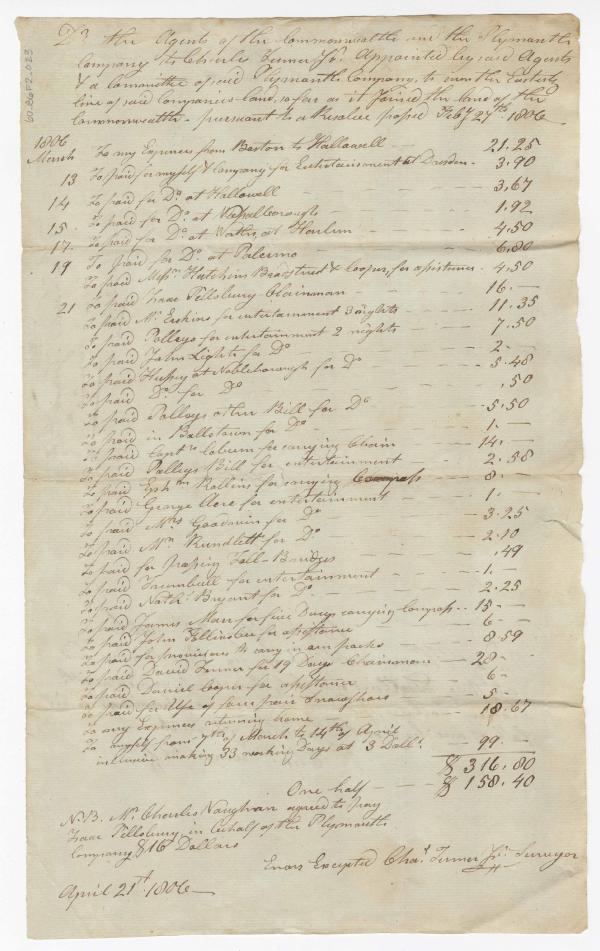 Dr. the Agents of the Commonwealth and the Plymouth
Company to Charles Turner Jr. Appointed by said Agents
& a Committee of said Plymouth Company, to run the Easterly
line of said Companies land, so far as it Joined the land of the
Commonwealth - pursuant to a Resolve passed Feby 27th 1806
1806
March To my Expences from Boston to Hallowell - 21.25
13 To paid for myself & Company for Entertainment at Dresden - 3.90
14 To paid for Do. at Hallowell 3.67
15 To paid for Do. at Vassalborough 1.92
17 To paid for Do. at Harlem 4.50
19 To paid for Do. at Palermo 6.80
To paid Messrs. Hutchins Bradstreet & Cooper, for assistance - 4.50
21 To paid Isaac Pillsbury Chainman 16.-
To paid Mr Erskins for entertainment 3 nights 11.35
To paid Polleys for entertainment 2 nights 7.50
To paid John Lights for Do 2.-
To paid Hussey at Nobleborough for Do 5.48
To paid Do. for Do .50
To paid Polleys other Bill for Do 5.50
To paid in Ballstown for Do 1.-
To paid Capt. for carrying Chain 14.-
To paid Polleys Bill for entertainment 2.58
To paid Rollins for carrying Compass 8.-
To paid George for entertainment 1.
To paid Mrs Goodwin for Do 3.25
To paid Mr Rundlett for Do 2.10
To paid for passing Toll-Bridges .49
To paid Trumbull for entertainment 1.-
To paid Nathl. Bryant for Do. 2.25
To paid James Marr for five Days carrying Compass 15-
To paid John for assistance 6-
To paid for provisions to carry in our packs 8.59
To paid David Turner for 19 Days Chainman 28-
To paid Daniel Cooper for assistance 6-
To paid for Use of four pair Snowshoes 5-
To my Expences returning home 18.67
To myself from 7th of March to 14th of April
inclusive making 33 working Days at 3 Dolls. 99.-
$ 316.80
One half $ 158.40
N.B. Mr Charles Vaughan agreed to pay
Isaac Pillsbury in behalf of the Plymouth
Company $16 Dollars
Errors Excepted Chas. Turner Jr. Surveyor
April 21st. 1806
60.86F2.023